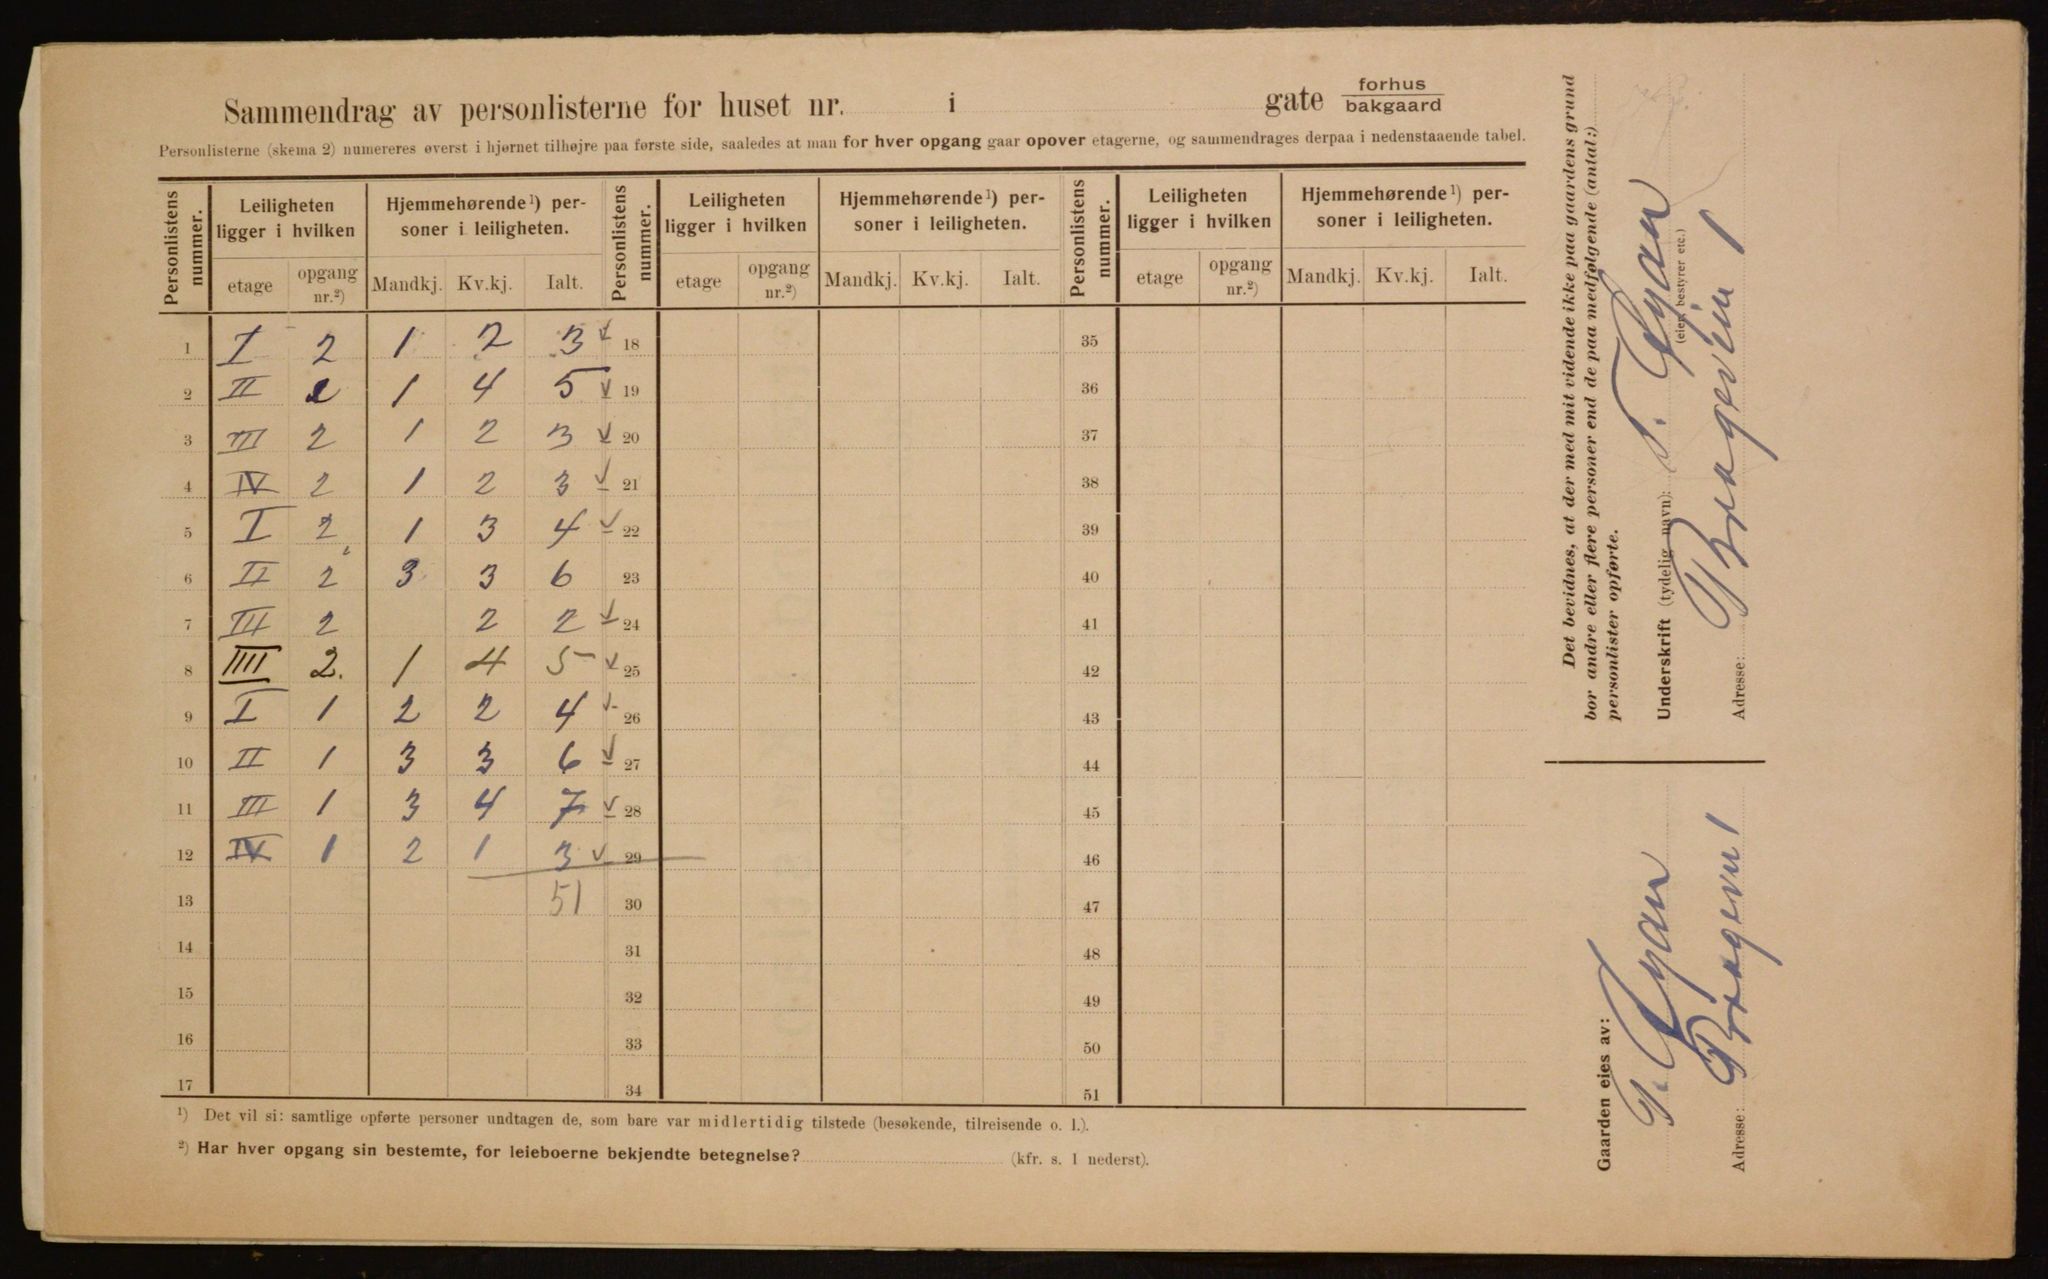 Sammendrag av personlisterne for huset nr. i gate forhus bakgaard
Personlisterne (skema 2) numereres øverst i hjørnet tilhøjre paa første side, saaledes at man for hver opgang gaar opover etagerne, og sammendrages derpaa i nedenstaaende tabel.
Personlistens nummer. Leiligheten ligger i hvilken Hjemmehørende¹) personer i leiligheten. Personlistens nummer. Leiligheten ligger i hvilken Hjemmehørende¹) personer i leiligheten. Personlistens nummer. Leiligheten ligger i hvilken Hjemmehørende¹) personer i leiligheten.
etage opgang nr.²) Mandkj. Kv.kj. Ialt. etage opgang nr.²) Mandkj. Kv.kj. Ialt. etage opgang nr.²) Mandkj. Kv.kj. Ialt.
1 I 2 1 2 3 18 35
2 II 2 1 4 5 19 36
3 III 2 1 2 3 20 37
4 IV 2 1 2 3 21 38
5 I 2 1 3 4 22 39
6 II 2 3 3 6 23 40
7 III 2 2 2 24 41
8 IIII 2. 1 4 5 25 42
9 I 1 2 2 4 26 43
10 II 1 3 3 6 27 44
11 III 1 3 4 7 28 45
12 IV 1 2 1 3 29 46
13 51 30 47
14 31 48
15 32 49
16 33 50
17 34 51
¹) Det vil si: samtlige opførte personer undtagen de, som bare var midlertidig tilstede (besøkende, tilreisende o. l.).
²) Har hver opgang sin bestemte, for leieboerne bekjendte betegnelse? (kfr. s. 1 nederst).
Det bevidnes, at der med mit vidende ikke paa gaardens grund
bor andre eller flere personer end de paa medfølgende (antal:)
personlister opførte.
Underskrift (tydelig navn):
(eier, bestyrer etc.)
Adresse: 1
Gaarden eies av:
Adresse: 1